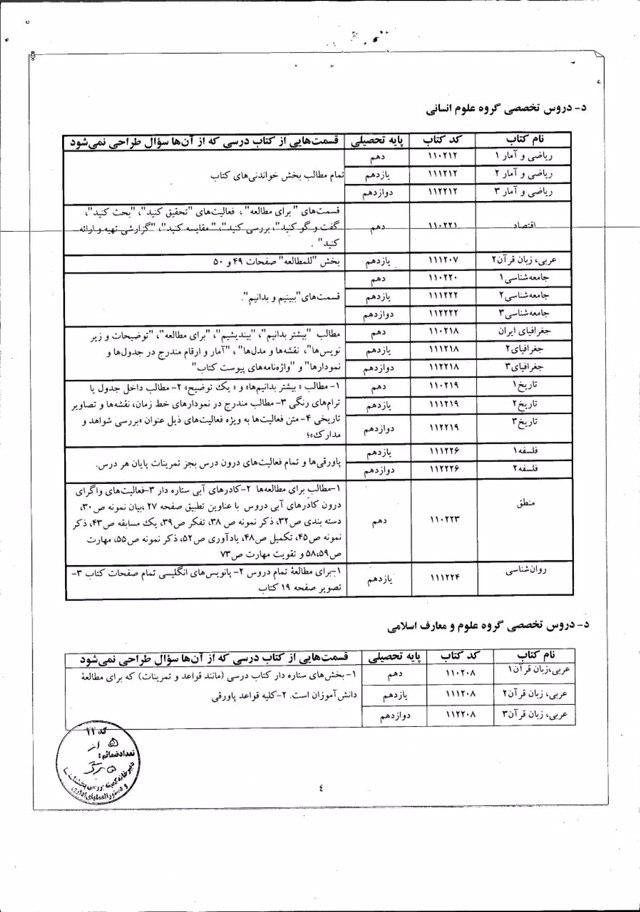 د- دروس تخصصی گروه علوم انسانی
نام کتاب | کد کتاب | پایه تحصیلی | قسمت‌هایی از کتاب درسی که از آن‌ها سؤال طراحی نمی‌شود
ریاضی و آمار ۱ | ۱۱۰۲۱۲ | دهم | تمام مطالب بخش خواندنی‌های کتاب
ریاضی و آمار ۲ | ۱۱۱۲۱۲ | یازدهم
ریاضی و آمار ۳ | ۱۱۲۲۱۲ | دوازدهم
اقتصاد | ۱۱۰۲۲۱ | دهم | قسمت‌های "برای مطالعه" ، فعالیت‌های "تحقیق کنید"، "بحث کنید"،
گفت و گو کنید"، بررسی کنید"، "مقایسه کنید"، "گزارشی تهیه و ارائه
کنید" .
عربی، زبان قرآن۲ | ۱۱۱۲۰۷ | یازدهم | بخش "للمطالعه" صفحات ۴۹ و ۵۰
جامعه‌شناسی۱ | ۱۱۰۲۲۰ | دهم | قسمت‌های"ببینیم و بدانیم".
جامعه‌شناسی۲ | ۱۱۱۲۲۲ | یازدهم
جامعه‌شناسی۳ | ۱۱۲۲۲۲ | دوازدهم
جغرافیای ایران | ۱۱۰۲۱۸ | دهم | مطالب "بیشتر بدانیم"، "بیندیشیم"، "برای مطالعه"، "توضیحات و زیر
نویس‌ها"، نقشه‌ها و مدل‌ها" ، "آمار و ارقام مندرج در جدول‌ها و
نمودارها" و "واژه‌نامه‌های پیوست کتاب"
جغرافیای۲ | ۱۱۱۲۱۸ | یازدهم
جغرافیای۳ | ۱۱۲۲۱۸ | دوازدهم
تاریخ۱ | ۱۱۰۲۱۹ | دهم | ۱- مطالب « بیشتر بدانیم‌ها» و « یک توضیح» ۲- مطالب داخل جدول یا
ترام‌های رنگی ۳- مطالب مندرج در نمودارهای خط زمان، نقشه‌ها و تصاویر
تاریخی ۴- متن فعالیت‌ها به ویژه فعالیت‌های ذیل عنوان «بررسی شواهد و
مدارک»؛
تاریخ۲ | ۱۱۱۲۱۹ | یازدهم
تاریخ۳ | ۱۱۲۲۱۹ | دوازدهم
فلسفه۱ | ۱۱۱۲۲۶ | یازدهم | پاورقی‌ها و تمام فعالیت‌های درون درس بجز تمرینات پایان هر درس.
فلسفه۲ | ۱۱۲۲۲۶ | دوازدهم
منطق | ۱۱۰۲۲۳ | دهم | ۱-مطالب برای مطالعه‌ها ۲-کادرهای آبی ستاره دار ۳-فعالیت‌های واگرای
درون کادرهای آبی دروس با عناوین تطبیق صفحه ۲۷ ،بیان نمونه ص۳۰،
دسته بندی ص۳۲، ذکر نمونه ص ۳۸، تفکر ص۳۹، یک مسابقه ص۴۳، ذکر
نمونه ص۴۵، تکمیل ص۴۸، یادآوری ص۵۲، ذکر نمونه ص۵۵، مهارت
ص۵۸،۵۹ و تقویت مهارت ص۷۳
روان‌شناسی | ۱۱۱۲۲۴ | یازدهم | ۱-برای مطالعهٔ تمام دروس ۲- پانویس‌های انگلیسی تمام صفحات کتاب ۳-
تصویر صفحه ۱۹ کتاب
د- دروس تخصصی گروه علوم و معارف اسلامی
نام کتاب | کد کتاب | پایه تحصیلی | قسمت‌هایی از کتاب درسی که از آن‌ها سؤال طراحی نمی‌شود
عربی، زبان قرآن۱ | ۱۱۰۲۰۸ | دهم | ۱- بخش‌های ستاره دار کتاب درسی (مانند قواعد و تمرینات) که برای مطالعهٔ
دانش‌آموزان است. ۲-کلیه قواعد پاورقی
عربی، زبان قرآن۲ | ۱۱۱۲۰۸ | یازدهم
عربی، زبان قرآن۳ | ۱۱۲۲۰۸ | دوازدهم
کد ۱۱
۵ از
تعداد ضمائم:
۵ برگ
۴